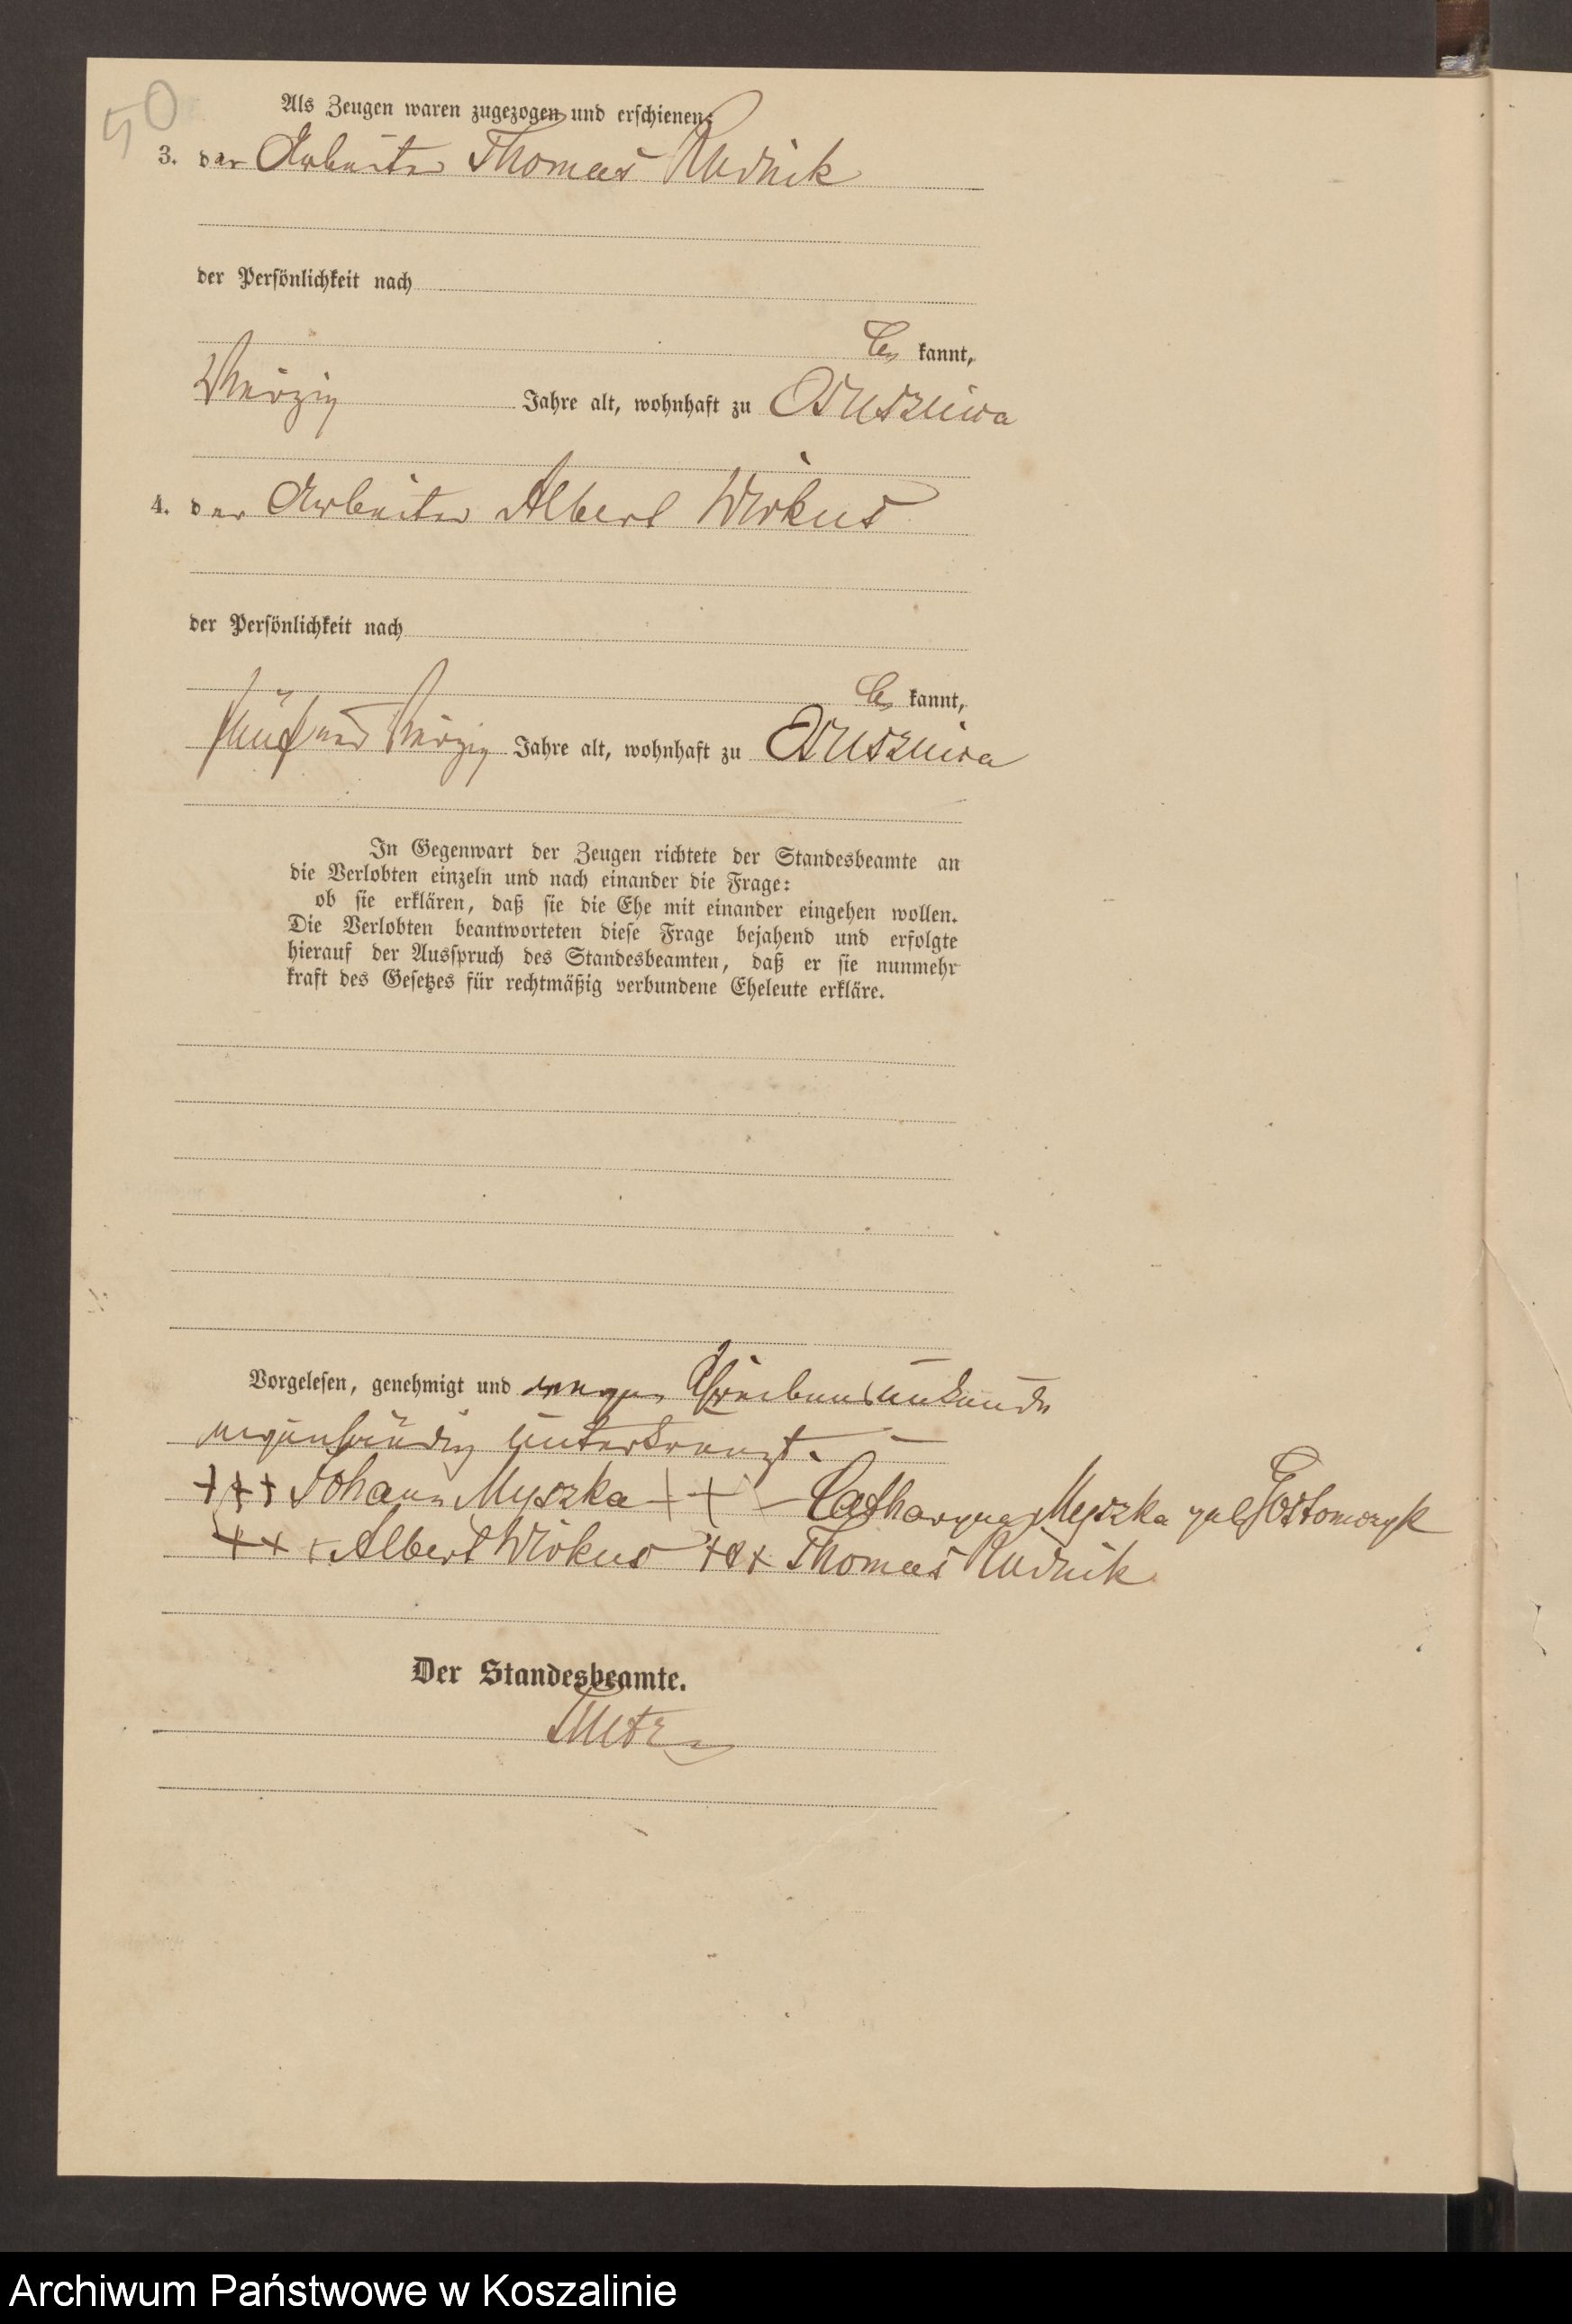 50
Als Zeugen waren zugezogen und erschienen:
3. der Arbeiter Thomas Rudnik
der Persönlichkeit nach
be kannt,
vierzig Jahre alt, wohnhaft zu Ossusznica
4. der Arbeiter Albert Wirkus
der Persönlichkeit nach
be kannt,
fünf und vierzig Jahre alt, wohnhaft zu Ossusznica
In Gegenwart der Zeugen richtete der Standesbeamte an
die Verlobten einzeln und nach einander die Frage:
ob sie erklären, daß sie die Ehe mit einander eingehen wollen.
Die Verlobten beantworteten diese Frage bejahend und erfolgte
hierauf der Ausspruch des Standesbeamten, daß er sie nunmehr
kraft des Gesetzes für rechtmäßig verbundene Eheleute erkläre.
Vorgelesen, genehmigt und wegen Schreibensunkunde
eigenhändig unterkreuzt.
+++ Johann Myszka ++ Catharyna Myszka geb Gostomczyk
+++ Albert Wirkus +++ Thomas Rudnik
Der Standesbeamte.
Archiwum Państwowe w Koszalinie